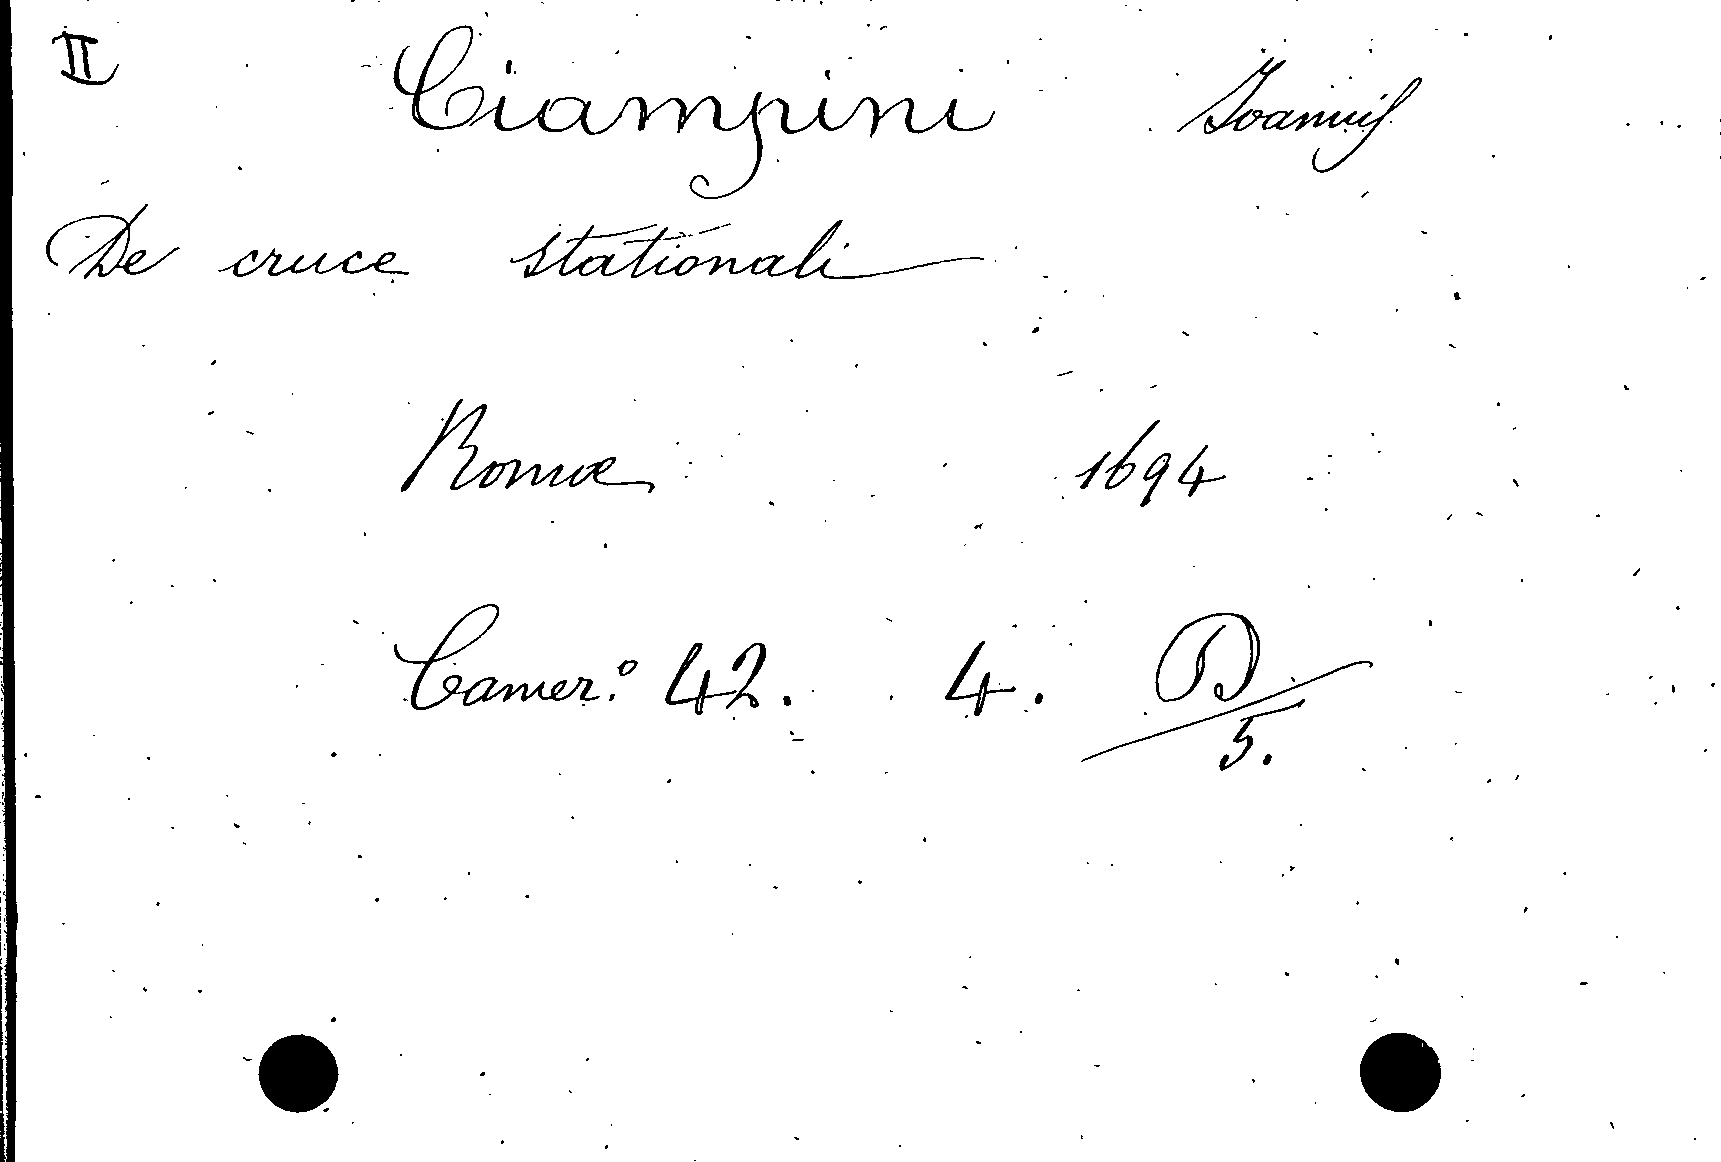 II Ciampini Joannis
De cruce stationali
Romæ 1694
Camer.º 42. 4. D/5.